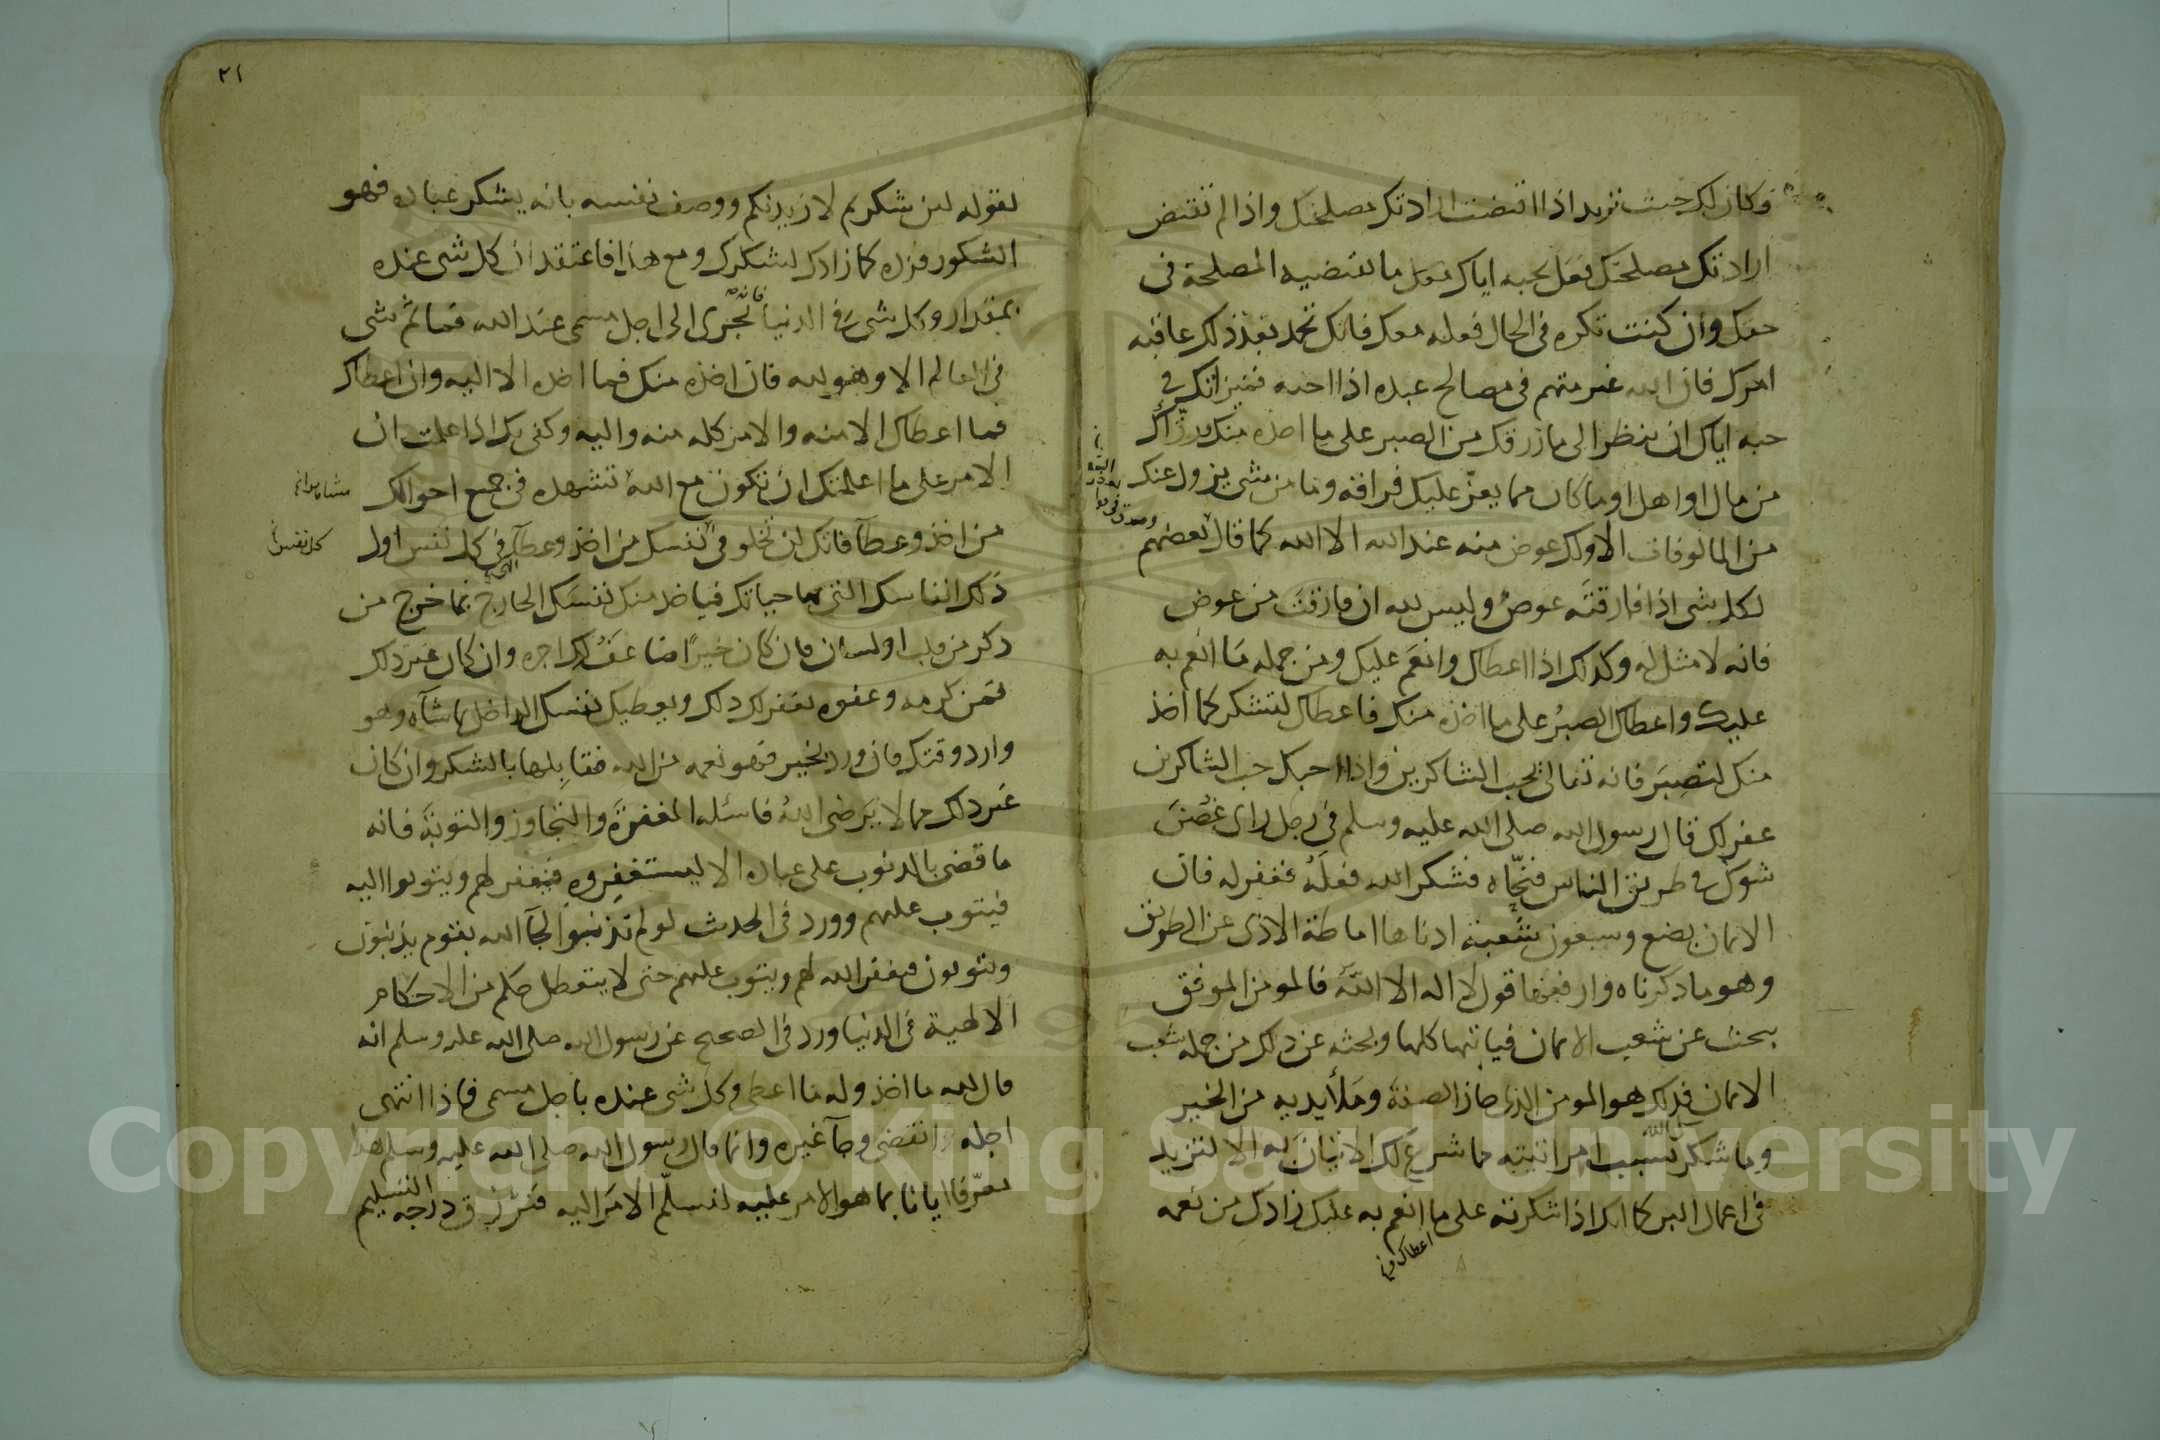 وكان لك حيث تريد اذا اقتضت ارادتك مصلحتك واذا لم تقتض
ارادتك مصلحتك فعل بحبه اياك معك ما تقتضيه المصلحة في
حقك وان كنت تكره في الحال فعله معك فانك تحمد بعد ذلك عاقبة
امرك فان الله غير متهم في مصالح عبده اذا احبه فميزانك في
حبه اياك ان ينظر الى ما رزقك من الصبر على ما اخذه منك ورزاك
من مال او اهل او ما كان مما يعز عليك فراقه وما من شي يزول عنك
من المالوفات الا ولك عوض منه عند الله الا الله كما قال بعضهم
لكل شي اذا فارقته عوض وليس لله ان فارقت من عوض
فانه لا مثل له وكذلك اذا اعطاك وانعم عليك ومن جملة ما انعم به
عليك واعطاك الصبر على ما اخذه منك فاعطاك لتشكر كما اخذ
منك لتصبر فانه تعالى يحب الشاكرين واذا احبك حب الشاكرين
غفر لك قال رسول الله صلى الله عليه وسلم في رجل راى غصن
شوك في طريق الناس فنحاه فشكر الله فعله فغفر له فان
الايمان بضع وسبعون شعبة ادناها اماطة الاذى عن الطريق
وهو ما ذكرناه وارفعها قول لا اله الا الله فالمومن الموفق
يبحث عن شعب الايمان فياتيها كلها وبحثه عن ذلك من جملة شعب
الايمان فذلك هو المومن الذي حاز الصفة وملأ يديه من الخير
وما شكرك الله بسبب امر اتيته مما شرع لك الاتيان به الا لتزيد
في اعمال البر كما انك اذا شكرته على ما انعم به عليك زادك من نعمه
لقوله لئن شكرتم لازيدنكم ووصف نفسه بانه يشكر عباده فهو
الشكور فزده كما زادك لشكرك ومع هذا فاعتقد ان كل شي عنده
بمقدار وكل شي في الدنيا فانه يجري الى اجل مسمى عند الله فما ثم شي
في العالم الا وهو لله فان اخذه منك فما اخذه الا اليه وان اعطاك
فما اعطاك الا منه والامر كله منه واليه وكفى بك اذا علمت ان
الامر على ما اعلمتك ان تكون مع الله تشهده في جميع احوالك
من اخذ وعطآ فانك لن تخلو في نفسك من اخذ وعطآ في كل نفس اول
ذلك انفاسك التي بها حياتك فياخذ منك نفسك الخارج بما خرج من
ذكر من قلب او لسان فان كان خيرا ضاعف لك اجره وان كان غير ذلك
فمن كرمه وعفوه يغفر لك ذلك ويعطيك نفسك الداخل بما شآه وهو
وارد وقتك فان ورد بخير فهو نعمة من الله فقابلها بالشكر وان كان
غير ذلك مما لا يرضى الله فاسئله المغفرة والتجاوز والتوبة فانه
ما قضى بالذنوب على عباده الا ليستغفروه فيغفر لهم ويتوبوا اليه
فيتوب عليهم وورد في الحديث لو لم تذنبوا لجآ الله بقوم يذنبون
ويتوبون فيغفر الله لهم ويتوب عليهم حتى لا يتعطل حكم من الاحكام
الالهية في الدنيا ورد في الصحيح عن رسول الله صلى الله عليه وسلم انه
قال لله ما اخذ وله ما اعطى وكل شي عنده باجل مسمى فاذا انتهى
اجله انقضى وجآ غيره وانما قال رسول الله صلى الله عليه وسلم هذا
معرفا ايانا بما هو الامر عليه لنسلم الامر اليه فنرزق درجة التسليم
٢١
كل نفس
Copyright © King Saud University